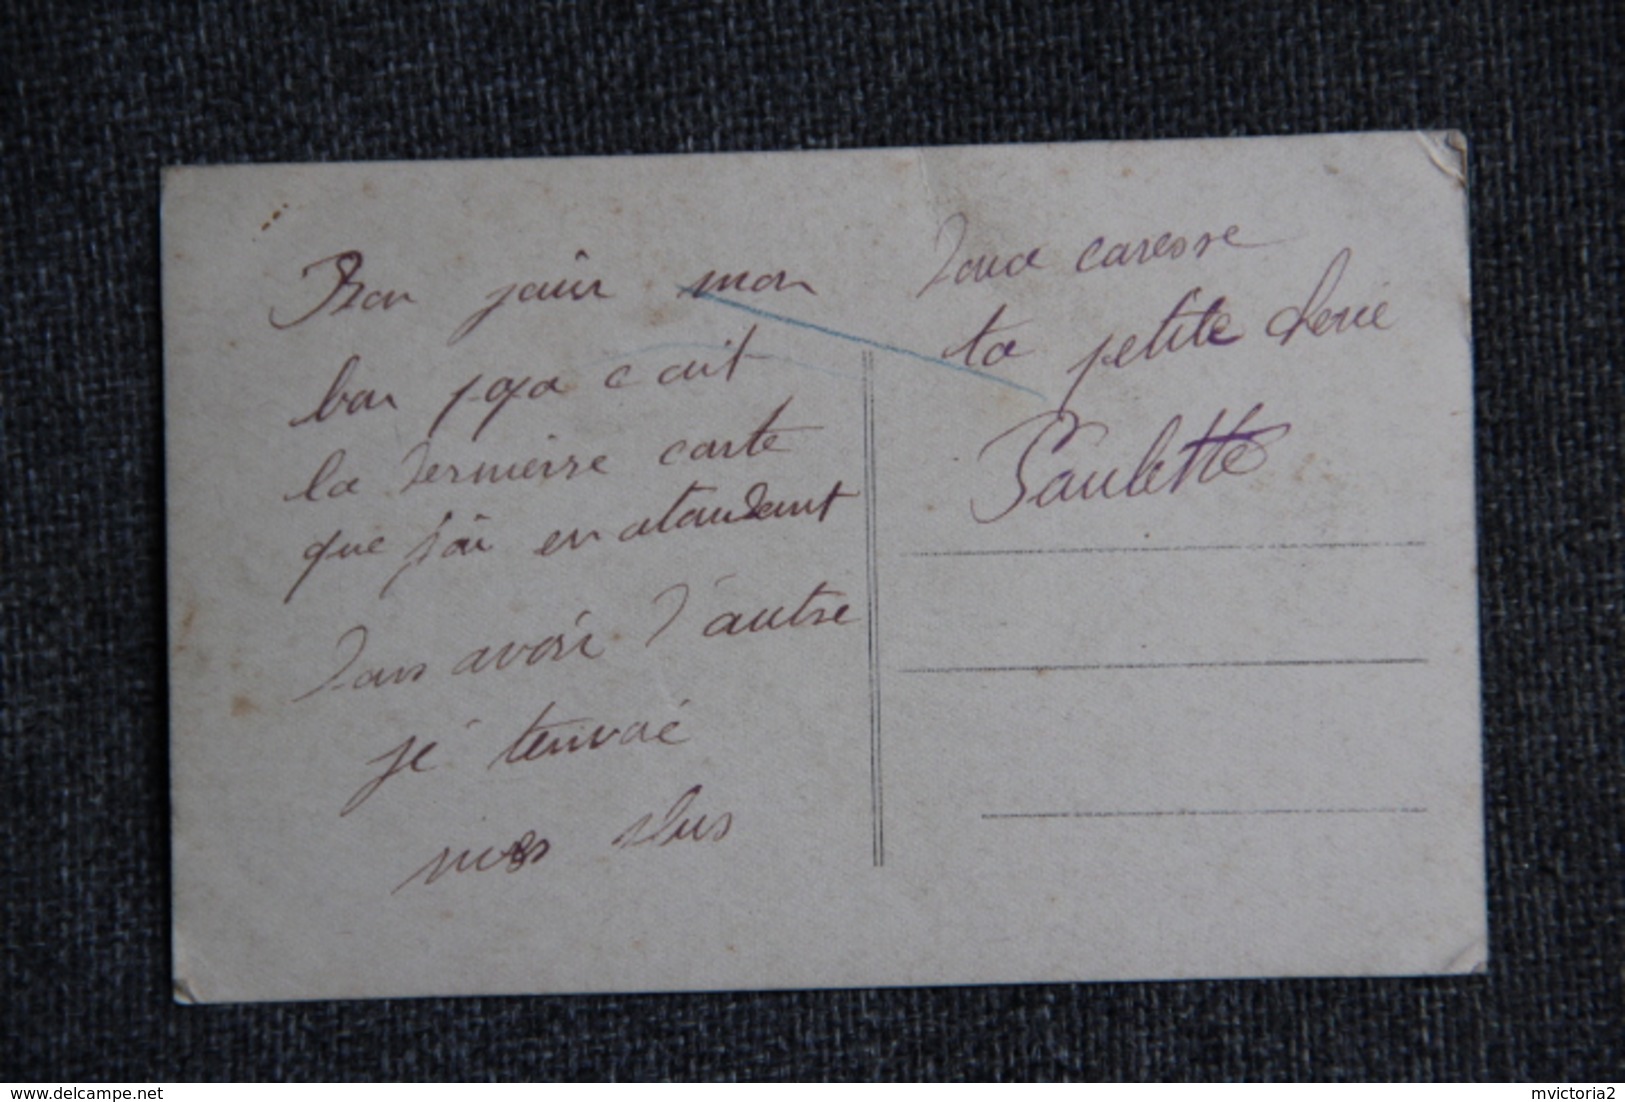 Bon jour mon
bon papa c ait
la dernierre carte
que j'ai en atandant
dans avoir d'autre
je tenvoié
mes plus
doux caresse
ta petite cherie
Paulette
www.delcampe.net
mvictoria2